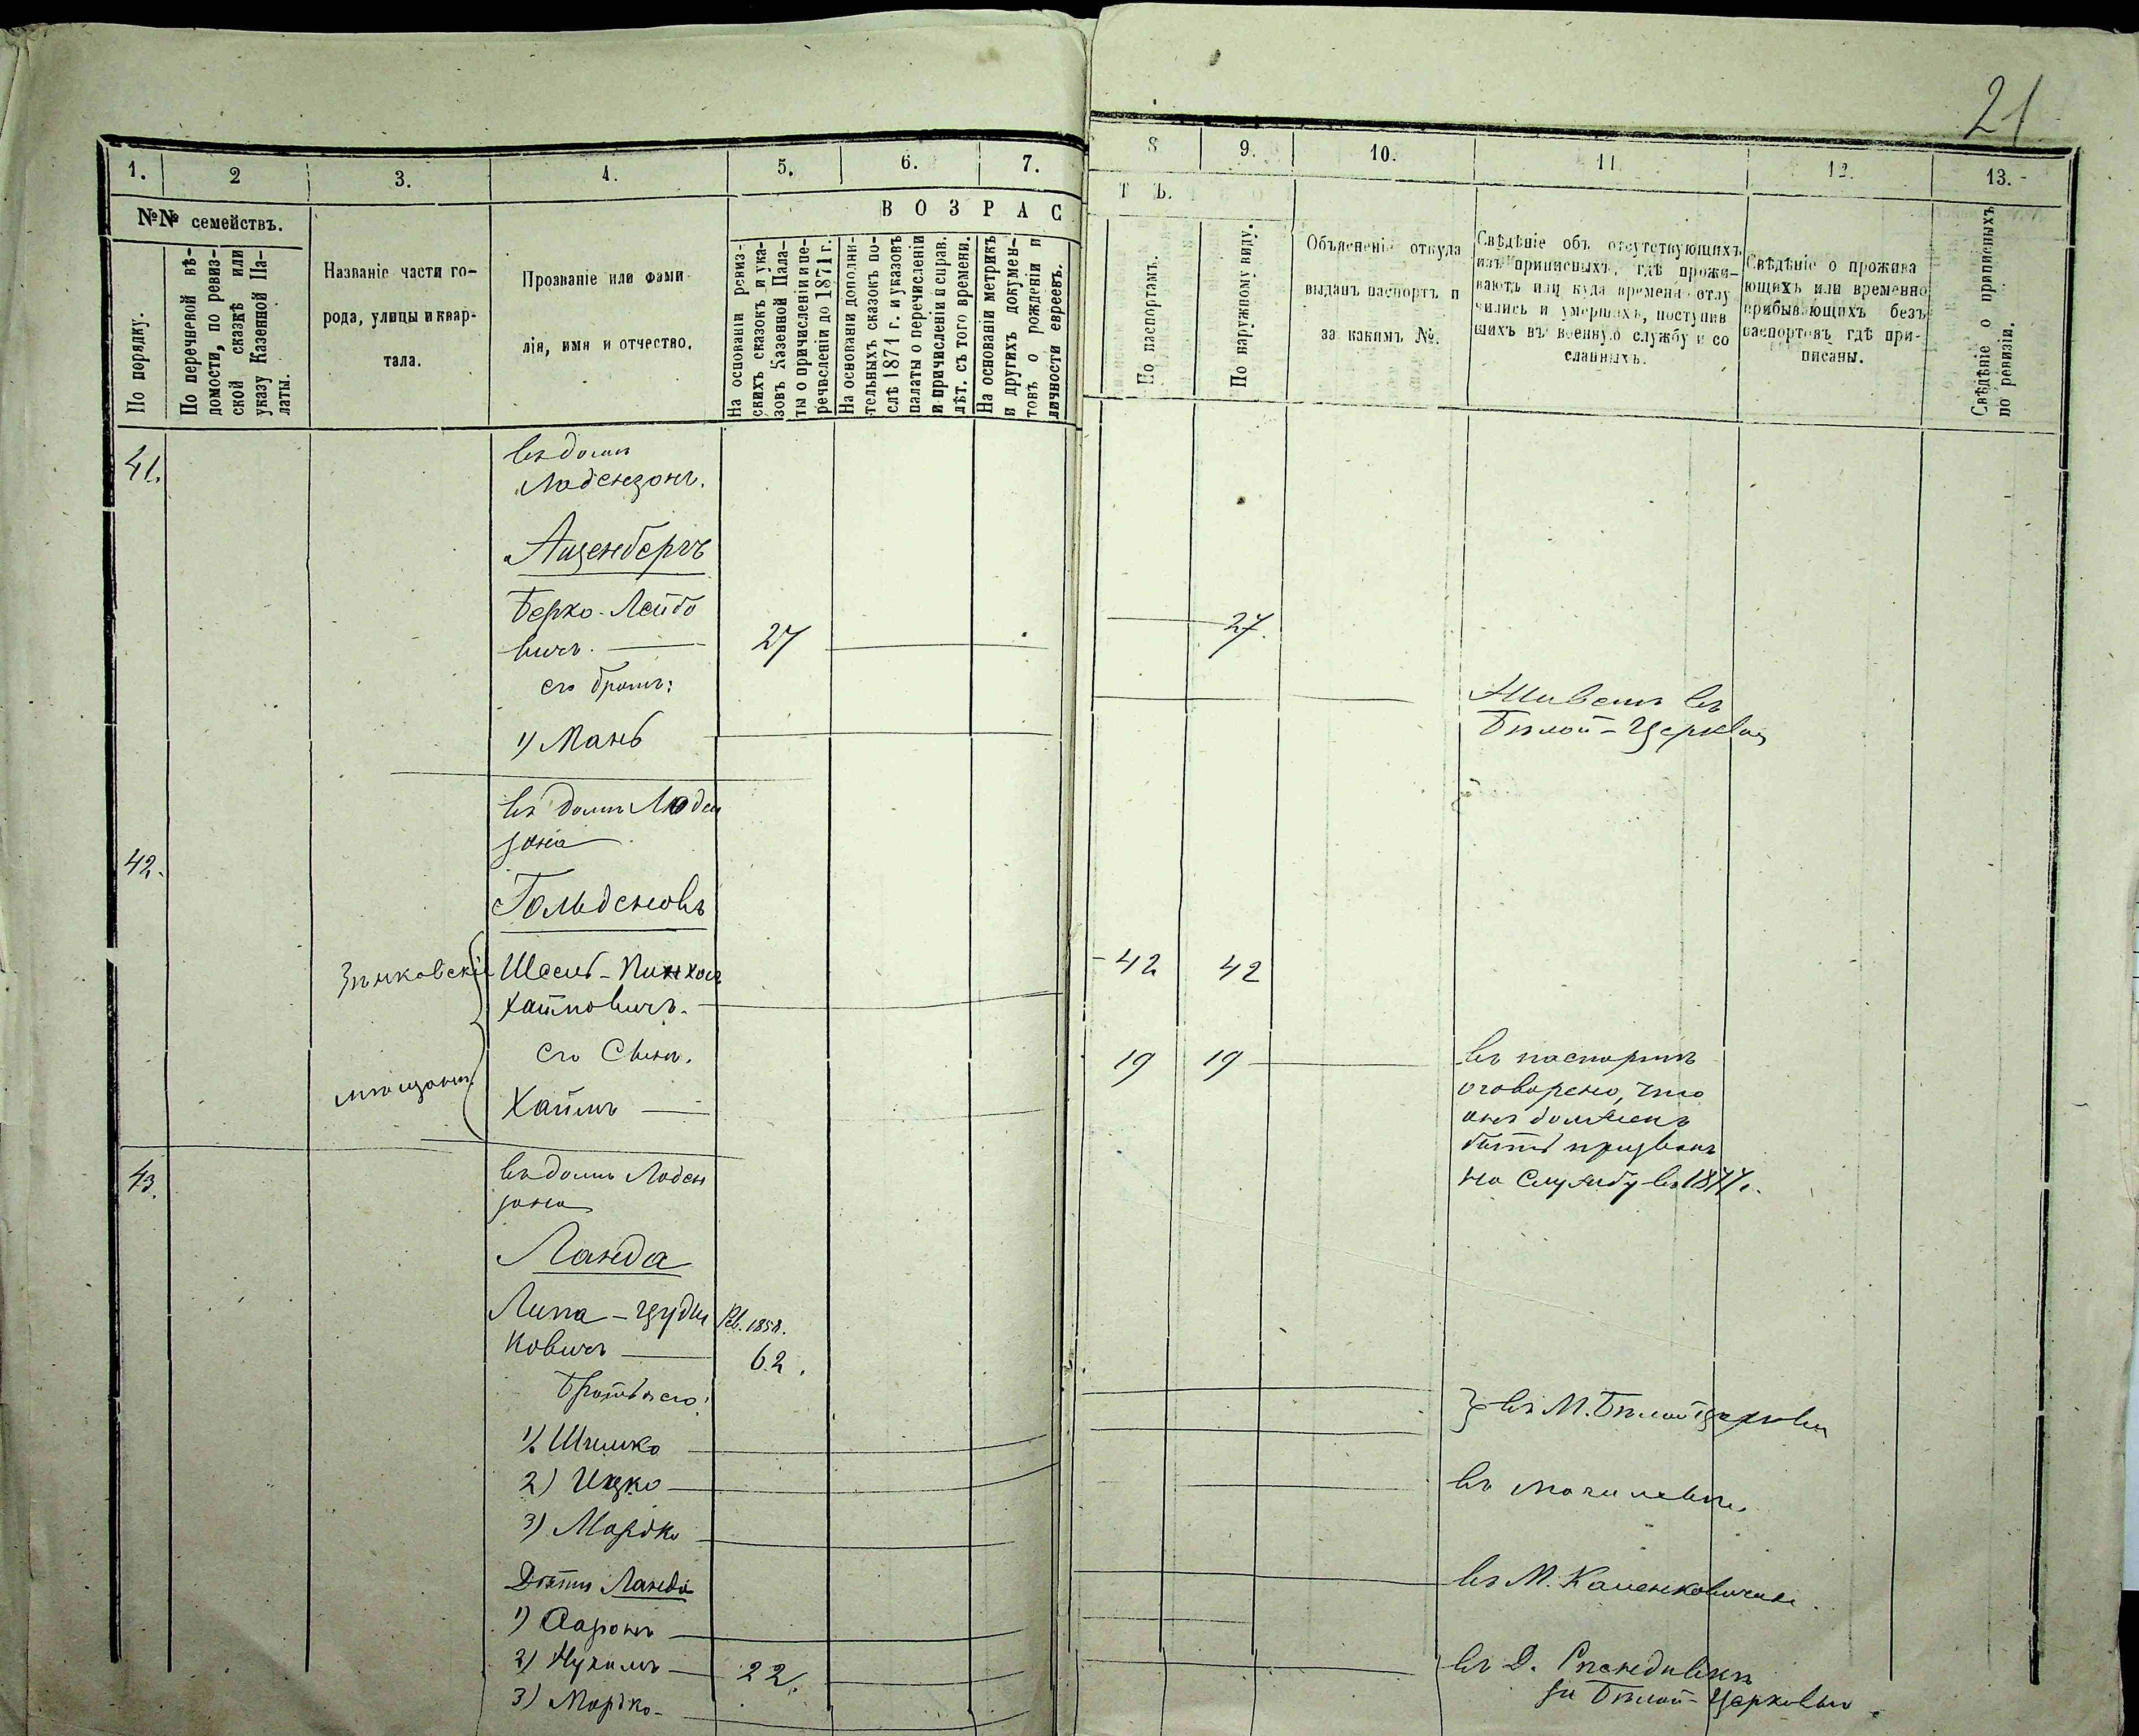 21
1.
2
3.
4.
5.
6.
7.
8
9.
10.
11
12.
13.
№№ семействъ.
По порядку.
По перечневой вѣ-
домости, по ревиз-
ской сказкѣ или
указу Казенной Па-
латы.
Названіе части го-
рода, улицы и квар-
тала.
Прозваніе или фами
лія, имя и отчество.
ВОЗРАС
На основаніи ревиз-
скихъ сказокъ и ука-
зовъ Казенной Пала-
ты о причисленіи и пе-
речисленіи до 1871 г.
На основаніи дополни-
тельныхъ сказокъ по-
слѣ 1871 г. и указовъ
палаты о перечисленіи
и причисленіи и справ.
лѣт. съ того времени.
На основаніи метрикъ
и другихъ докумен-
товъ о рожденіи и
личности евреевъ.
ТЪ.
По паспортамъ.
По наружному виду.
Объясненіе откуда
выданъ паспортъ и
за какимъ №.
Свѣдѣніе объ отсутствующихъ
изъ приписныхъ, гдѣ прожи-
ваютъ или куда времена отлу
чились и умершихъ, поступив
шихъ въ военную службу и со
сланныхъ.
Свѣдѣніе о прожива
ющихъ или временно
прибывающихъ безъ
паспортовъ гдѣ при-
писаны.
Свѣдѣніе о приписныхъ
по ревизіи.
41.
въ домѣ
Лодензонъ.
Айзенбергъ
Берко - Лейбо
вичъ. 27 27.
его братъ:
1) Мань
Живетъ въ
Бѣлой - Церкви
въ домѣ Лоден
зона
42.
Гольденовъ
Зѣньковскіе
мѣщане
Иосель - Пинхосъ
Хаимовичъ. 42 42
его Сынъ.
Хаимъ 19 19
въ паспортѣ
оговорено, что
онъ долженъ
быть призванъ
на службу въ 1877 г.
43.
въ домѣ Лоден
зона
Ланда
Липа - Цуди
ковичъ
Рев. 1858.
62.
Братья его:
1). Шлемко
2) Ицко
3) Мордко
} въ М. Бѣлой Церкви
въ Могилевѣ.
Дѣти Ланда
1) Ааронъ
въ М. Каменковичах.
2) Нухимъ 22.
3) Мордко
въ Д.
за Бѣлой - Церковью.